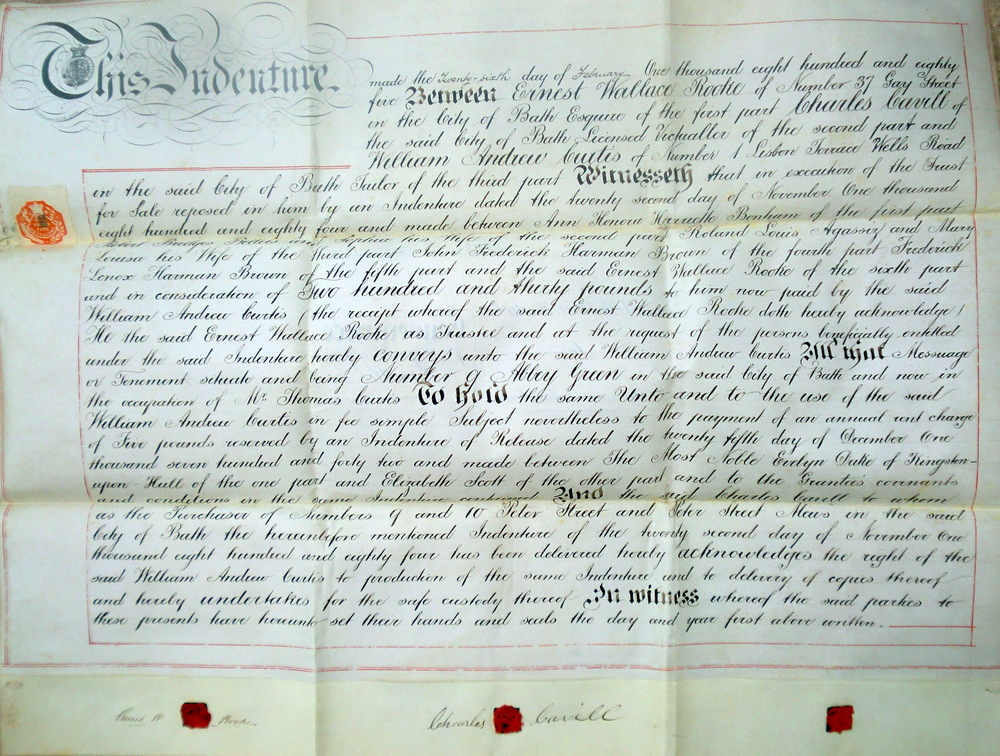 This Indenture.
made the Twenty-sixth day of February One thousand eight hundred and eighty
five Between Ernest Wallace Rooke of Number 37 Gay Street
in the City of Bath Esquire of the first part Charles Cavill of
the said City of Bath Licensed Victualler of the second part and
William Andrew Curtis of Number 1 Lisbon Terrace Wells Road
in the said City of Bath Tailor of the third part Witnesseth that in execution of the Trust
for Sale reposed in him by an Indenture dated the twenty second day of November One thousand
eight hundred and eighty four and made between Ann Honora Bonham of the first part
and Sophia his Wife of the second part Roland Louis Agassiz and Mary
Louisa his Wife of the third part John Frederick Harman Brown of the fourth part Frederick
Lenox Harman Brown of the fifth part and the said Ernest Wallace Rooke of the sixth part
and in consideration of Two hundred and thirty pounds to him now paid by the said
William Andrew Curtis (the receipt whereof the said Ernest Wallace Rooke doth hereby acknowledge)
He the said Ernest Wallace Rooke as Trustee and at the request of the persons beneficially entitled
under the said Indenture hereby conveys unto the said William Andrew Curtis All that Messuage
or Tenement situate and being Number 9 Abbey Green in the said City of Bath and now in
the occupation of Mr. Thomas Curtis To hold the same Unto and to the use of the said
William Andrew Curtis in fee simple Subject nevertheless to the payment of an annual rent charge
of Five pounds reserved by an Indenture of Release dated the twenty fifth day of December One
thousand seven hundred and forty two and made between The Most Noble Evelyn Duke of Kingston-
upon-Hull of the one part and Elizabeth Scott of the other part and to the Grantees covenants
and conditions in the same Indenture contained And the said Charles Cavill to whom
as the Purchaser of Numbers 9 and 10 Peter Street and Peter Street Mews in the said
City of Bath the hereinbefore mentioned Indenture of the twenty second day of November One
thousand eight hundred and eighty four has been delivered hereby acknowledges the right of the
said William Andrew Curtis to production of the same Indenture and to delivery of copies thereof
and hereby undertakes for the safe custody thereof In witness whereof the said parties to
these presents have hereunto set their hands and seals the day and year first above written.
Ernest W. Rooke
Charles Cavill